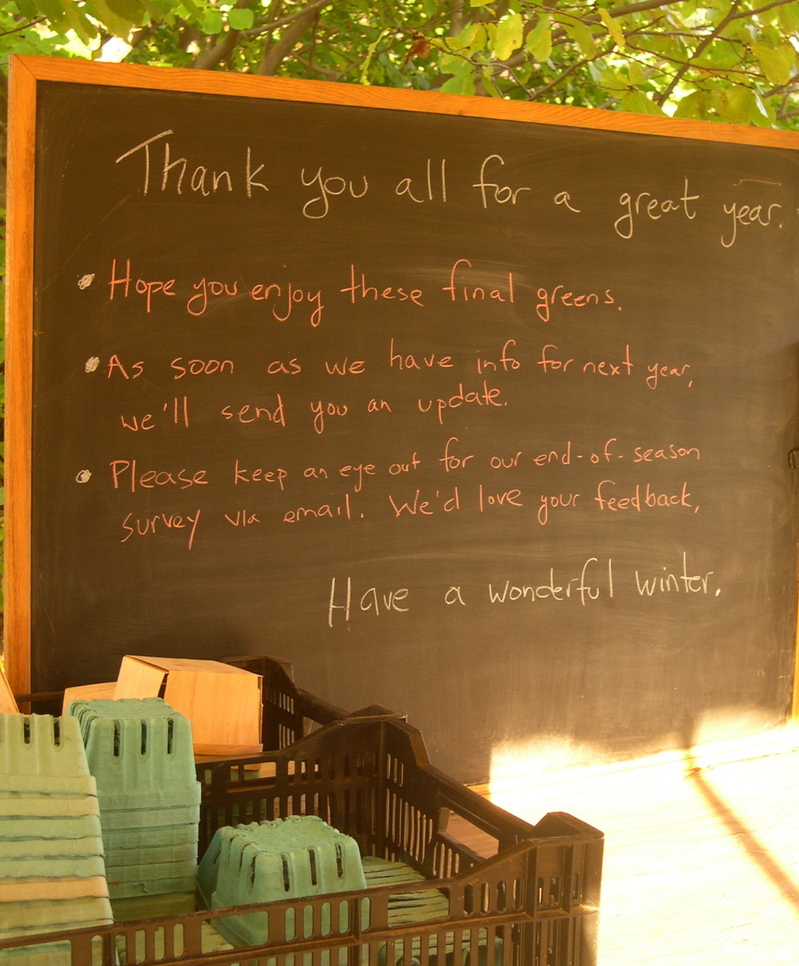 Thank you all for a great year.
Hope you enjoy these final greens.
As soon as we have info for next year,
we'll send you an update.
Please keep an eye out for our end-of-season
survey via email. We'd love your feedback.
Have a wonderful winter.